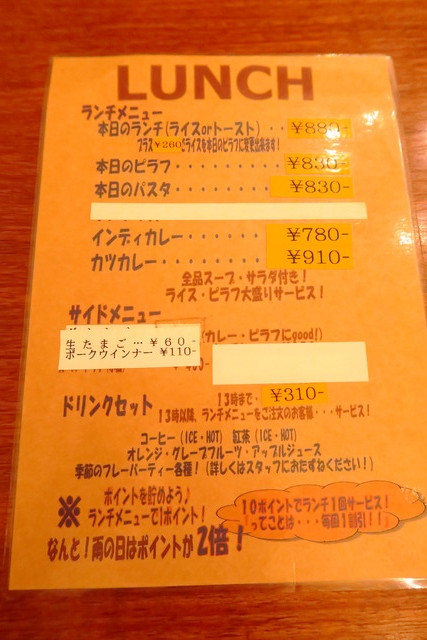 LUNCH
ランチメニュー
本日のランチ(ライスorトースト)・・¥880-
プラス¥260でライスを本日のピラフに変更出来ます!
本日のピラフ・・・・・・・・・¥830-
本日のパスタ・・・・・・・・・¥830-
インディカレー・・・・・・・¥780-
カツカレー・・・・・・・・・¥910-
全品スープ・サラダ付き!
ライス・ピラフ大盛りサービス!
サイドメニュー
(カレー・ピラフにgood!)
生たまご…¥60-
ポークウインナー ¥110-
ドリンクセット 13時まで・¥310-
13時以降、ランチメニューをご注文のお客様・・・サービス!
コーヒー(ICE・HOT) 紅茶(ICE・HOT)
オレンジ・グレープフルーツ・アップルジュース
季節のフレーバーティー各種!(詳しくはスタッフにおたずねください!)
※ ポイントを貯めよう♪
ランチメニューで1ポイント!
なんと!雨の日はポイントが2倍!
10ポイントでランチ1回サービス!
『ってことは・・・毎回1割引!!』